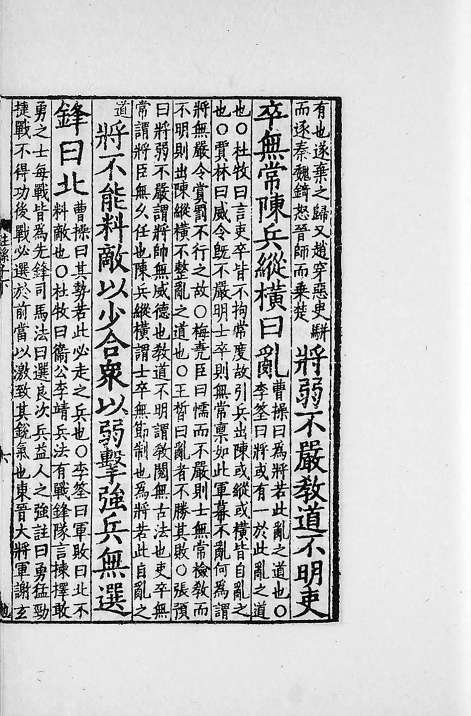 有也遂棄之歸又趙穿惡臾駢
而逐秦魏錡怒晉師而乘楚
將弱不嚴教道不明吏
卒無常陳兵縱橫曰亂
曹操曰為將若此亂之道也〇
李筌曰將或有一於此亂之道
也〇杜牧曰言吏卒皆不拘常度故引兵出陳或縱或橫皆自亂之
也〇賈林曰威令旣不嚴明士卒則無常稟如此軍幕不亂何為謂
將無嚴令賞罰不行之故〇梅堯臣曰懦而不嚴則士無常檢教而
不明則出陳縱橫不整亂之道也〇王晳曰亂者不勝其敗〇張預
曰將弱不嚴謂將帥無威德也教道不明謂教閱無古法也吏卒無
常謂將臣無久任也陳兵縱橫謂士卒無節制也為將若此自亂之
道
將不能料敵以少合衆以弱擊強兵無選
鋒曰北
曹操曰其勢若此必走之兵也〇李筌曰軍敗曰北不
料敵也〇杜牧曰衞公李靖兵法有戰鋒隊言揀擇敢
勇之士每戰皆為先鋒司馬法曰選良次兵益人之強註曰勇猛勁
捷戰不得功後戰必選於前當以激致其銳氣也東晉大將軍謝玄
註孫子下
六